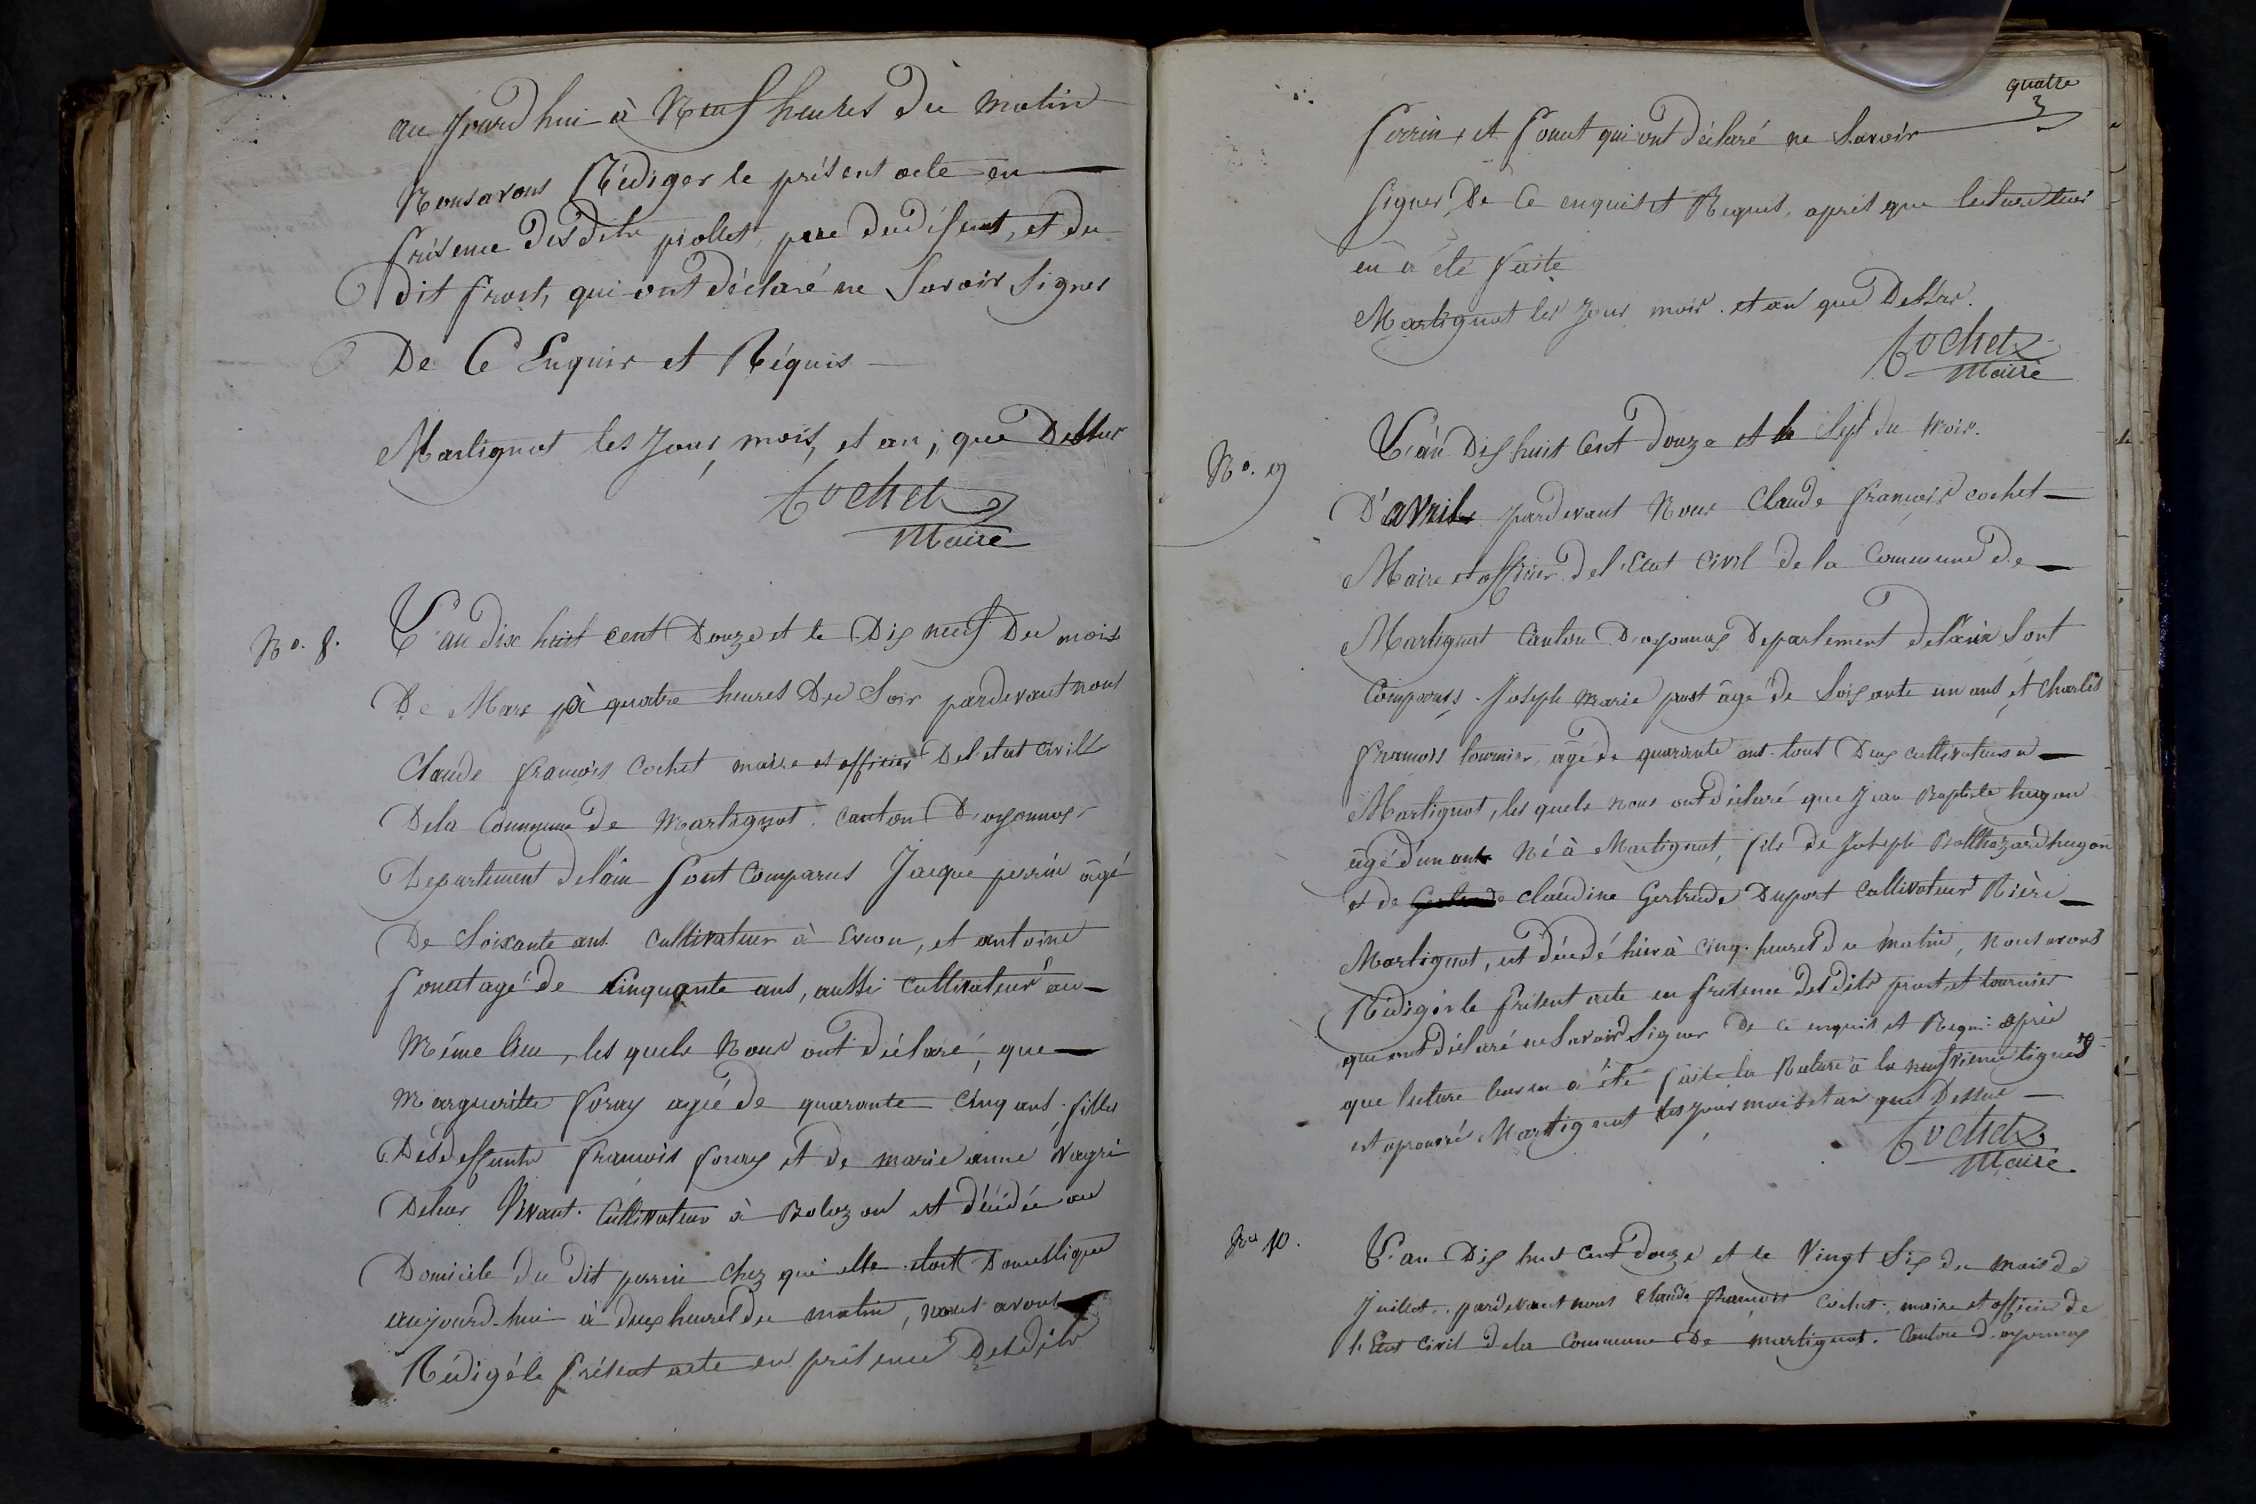 aujourd'hui à Neuf heures du matin
Nous avons Rédiger le présent acte en
présence desdits piollet, pere du défunt, et du
dit prost, qui ont déclaré ne Savoir Signer
De Ce Enquis et Réquis
Martignat les Jour, mois, et an, que Dessus
Cochet
Maire
No. 8.
L'an dix huit cent Douze et le Dix neuf Du mois
De Mars à quatre heures Du Soir pardevant nous
Claude françois Cochet maire et officier Del etat civil
Dela Commune de Martignat. canton D'oyonnax
Departement delain Sont Comparus Jaque perrin âgé
De Soixante ans Cultivateur à Evron, et antoine
âgé de Cinquante ans, aussi Cultivateur au
Même lieu, les quels Nous ont déclaré, que
Margueritte foray agée de quarante Cinq ans. filles
Desdeffunts francois foray et de marie anne
Deleur Vivant. Cultivateur à Bolozon est décédée au
Domicile du dit perrin chez qui elle etoit Domestique
aujourd-hui à deux heures du matin, nous avons
Rédigé le présent acte en présence Desdits
quatre
3
perrin, et qui ont déclaré ne Savoir
Signer De Ce enquis et Requis, après que lecture leur
en a été faite
Martignat les Jour mois et an que Dessus.
Cochet
Maire
No. 9
L'an Dix huit Cent douze et le Sept du mois.
D'avril pardevant Nous Claude françois cochet
Maire et officier del'Etat Civil de la Commune De
Martignat Canton D'oyonnax Departement delain Sont
Comparus. Joseph Marie prost âgé de Soixante un ans, et Charles
françois tournier, agé de quarante ans. tout Deux cultivateurs a
Martignat, les quels nous ont déclaré que Jean Baptiste hugon
âgé d'un ans Né à Martignat, fils de Joseph Balthazard hugon
et de Claudine Gertrude Duport Cultivateurs Rière
Martignat, est décédé hier à Cinq. heures du matin, nous avons
Rédigér le présent acte en présence desdits prost, et tournier
qui ont déclaré ne Savoir Signer De ce enquis, et Requi. après
que lecture leur en a été faite la Rature à la neufvieme ligne
est aprouvé Martignat les jour mois et an que Dessus
Cochet
Maire
No 10.
L'an Dix huit cent douze et le Vingt Six du mois de
Juillet. pardevant nous Claude françois Cochet. maire et officier de
l'Etat Civil dela Commune De martignat. Canton d'oyonnax